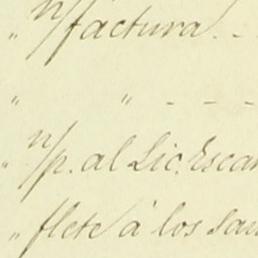 „ n/factura. -
„ „ - - -
„ n/p. al Lic. Escan
„ flete á los san